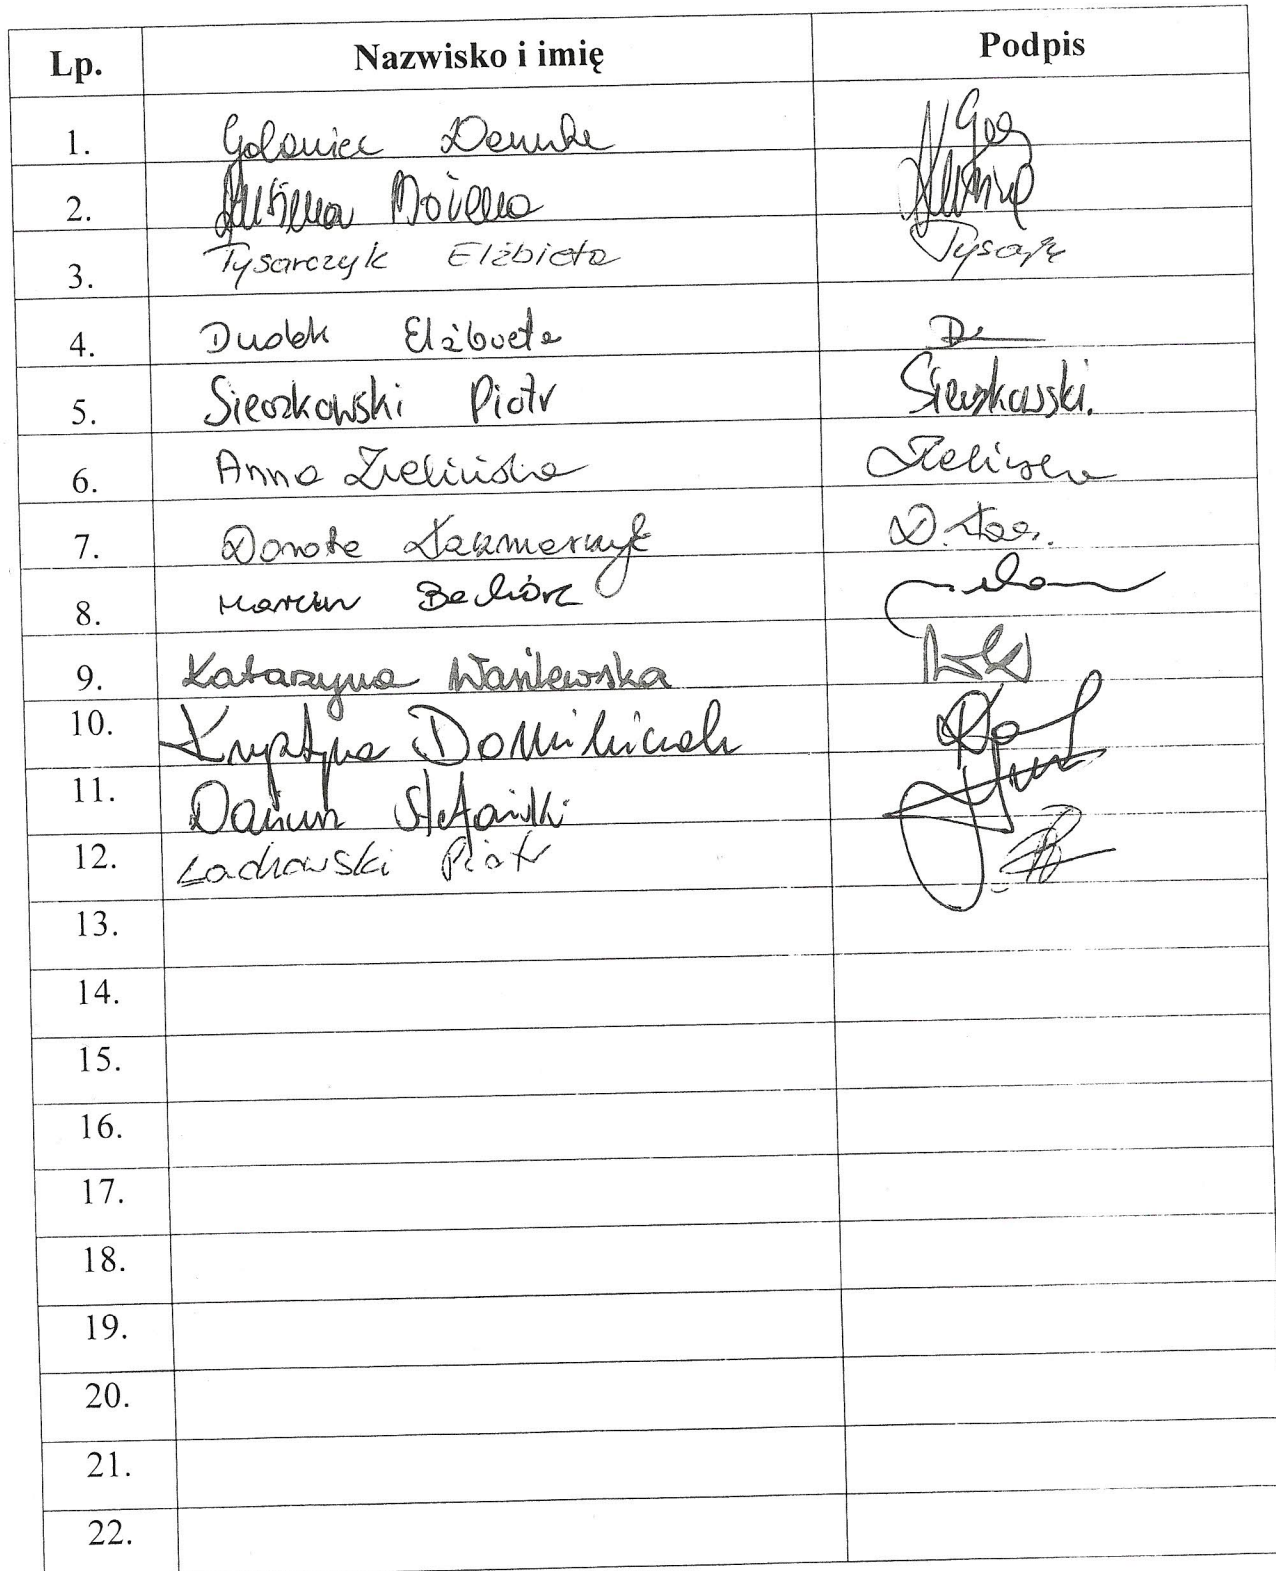 Lp. Nazwisko i imię Podpis
1. Golaniec Danuta
2. Bożena
3. Tysarczyk Elżbieta
4. Dudek Elżbieta D
5. Sieczkowski Piotr Sieczkowski.
6. Anna Zielińska Zielińska
7. Dorota Kaczmarczyk D. Kacz.
8. Marcin Bachórz
9. Katarzyna Wasilewska
10. Krystyna Dominiczak
11. Dariusz Stefański
12. Lachowski Piotr
13.
14.
15.
16.
17.
18.
19.
20.
21.
22.